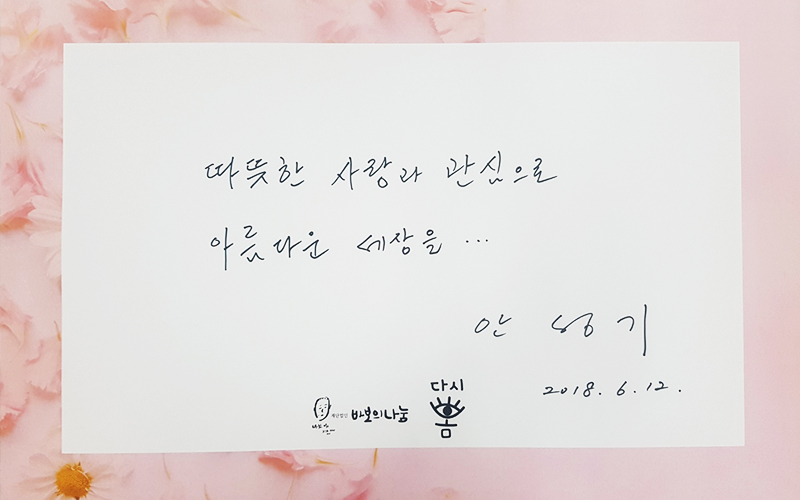 따뜻한 사랑과 관심으로
아름다운 세상을 ...
안 성 기
2018. 6. 12.
재단법인 바보의나눔
다시
봄